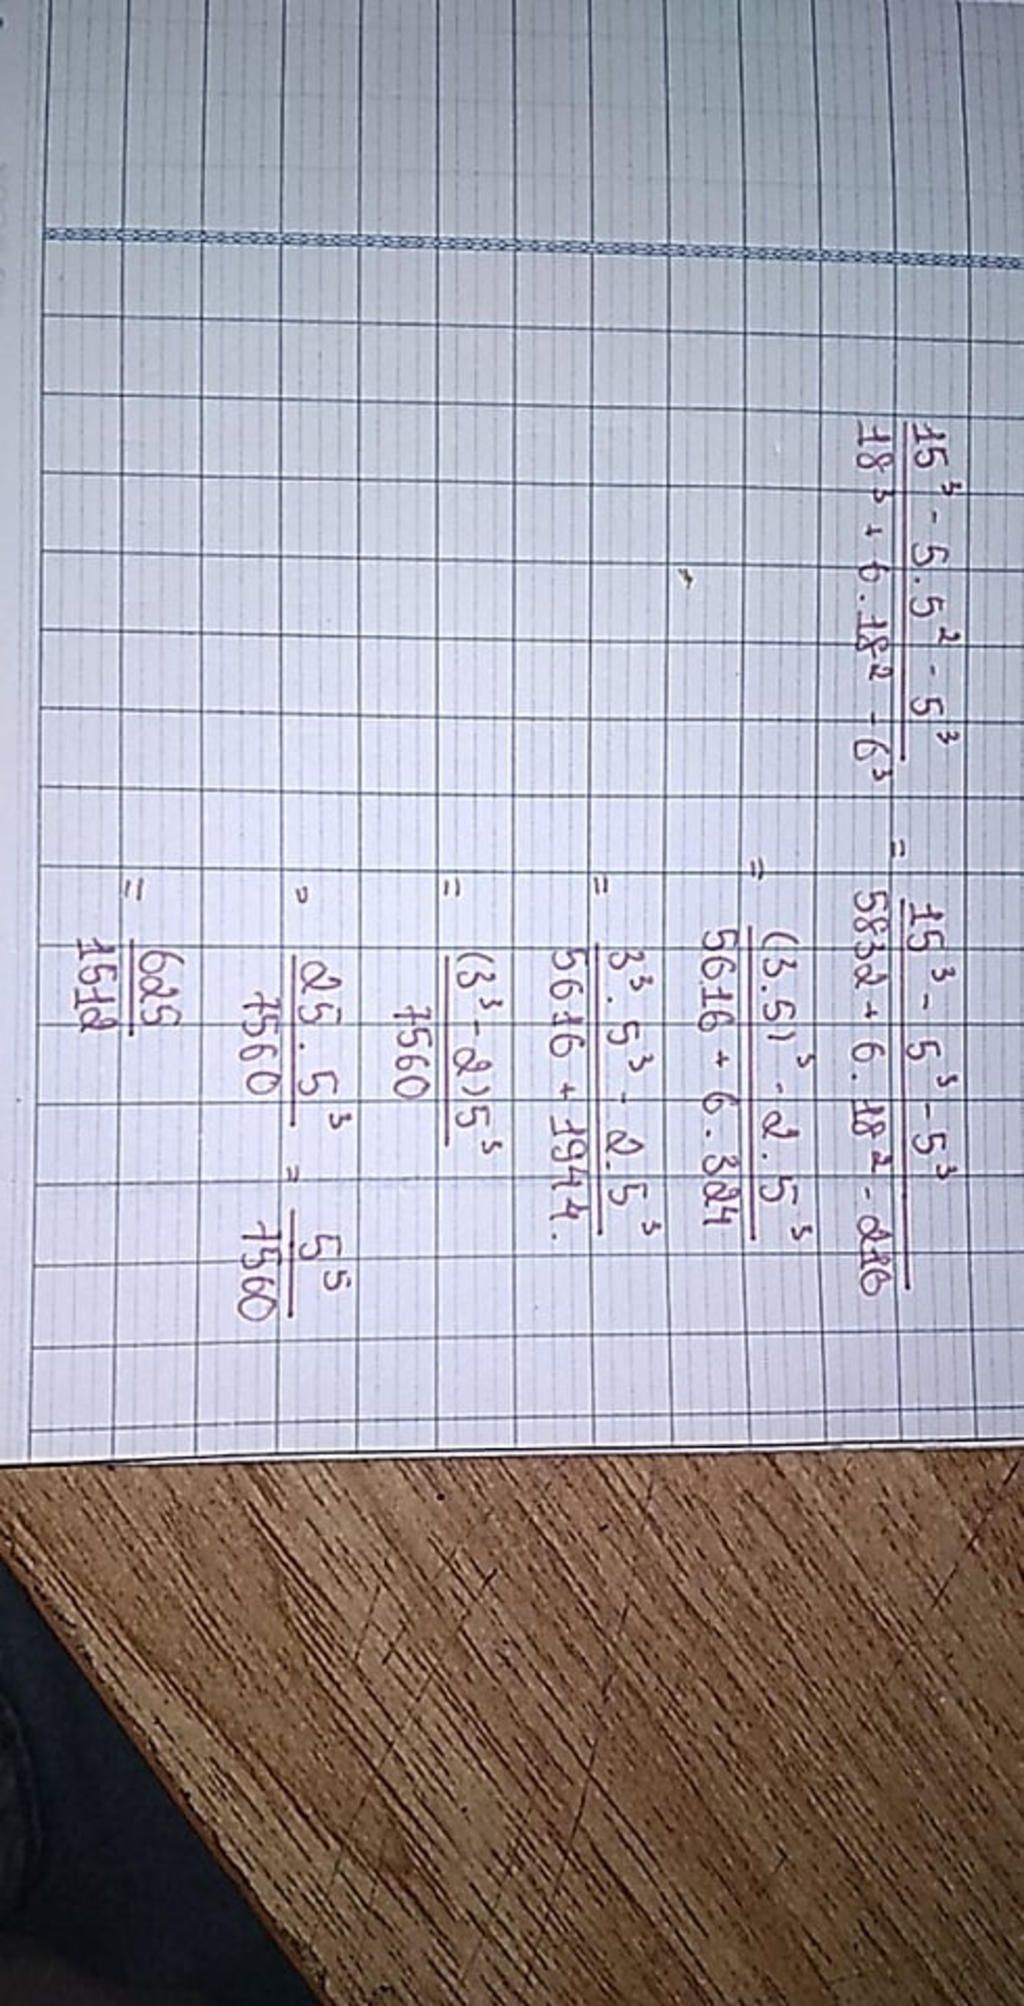 15³ - 5.5² - 5³ / 18³ + 6.18² - 6³ = 15³ - 5³ - 5³ / 5832 + 6.18² - 216
= (3.5)³ - 2.5³ / 5616 + 6.324
= 3³.5³ - 2.5³ / 5616 + 1944.
= (3³ - 2)5³ / 7560
= 25.5³ / 7560 = 5⁵ / 7560
= 625 / 1512